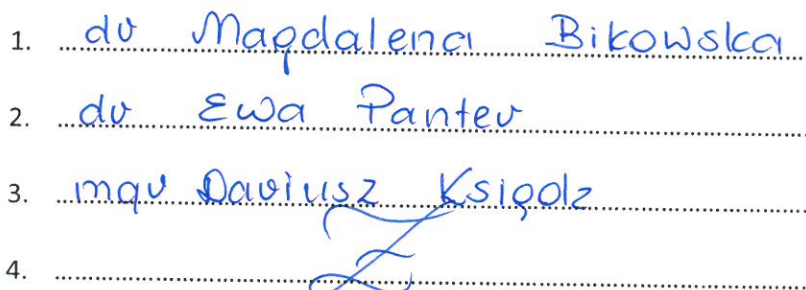 1. dr Magdalena Bikowska
2. dr Ewa Panter
3. mgr Dariusz Ksiądz
4.